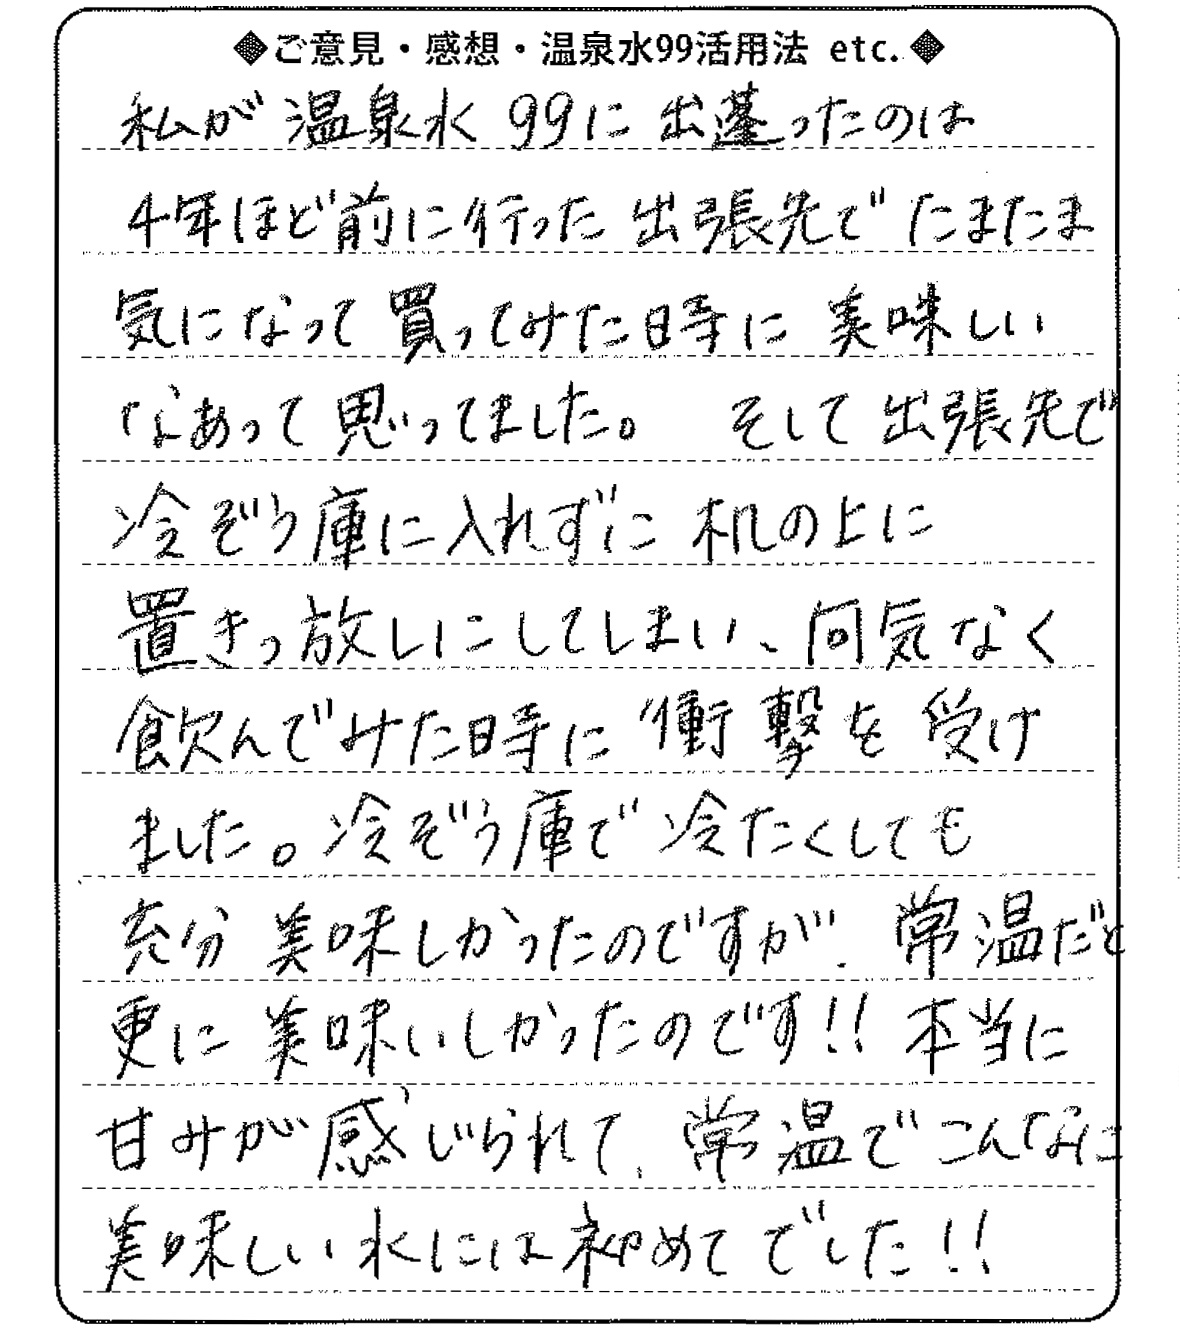 ◆ご意見・感想・温泉水99活用法 etc.◆
私が温泉水99に出蓬ったのは
4年ほど前に行った出張先でたまたま
気になって買ってみた時に美味しい
なあって思ってました。 そして出張先で
冷ぞう庫に入れずに机の上に
置きっ放しにしてしまい、何気なく
飲んでみた時に衝撃を受け
ました。冷ぞう庫で冷たくしても
充分美味しかったのですが、常温だと
更に美味いしかったのです!!本当に
甘みが感じられて、常温でこんなに
美味しい水には初めてでした!!